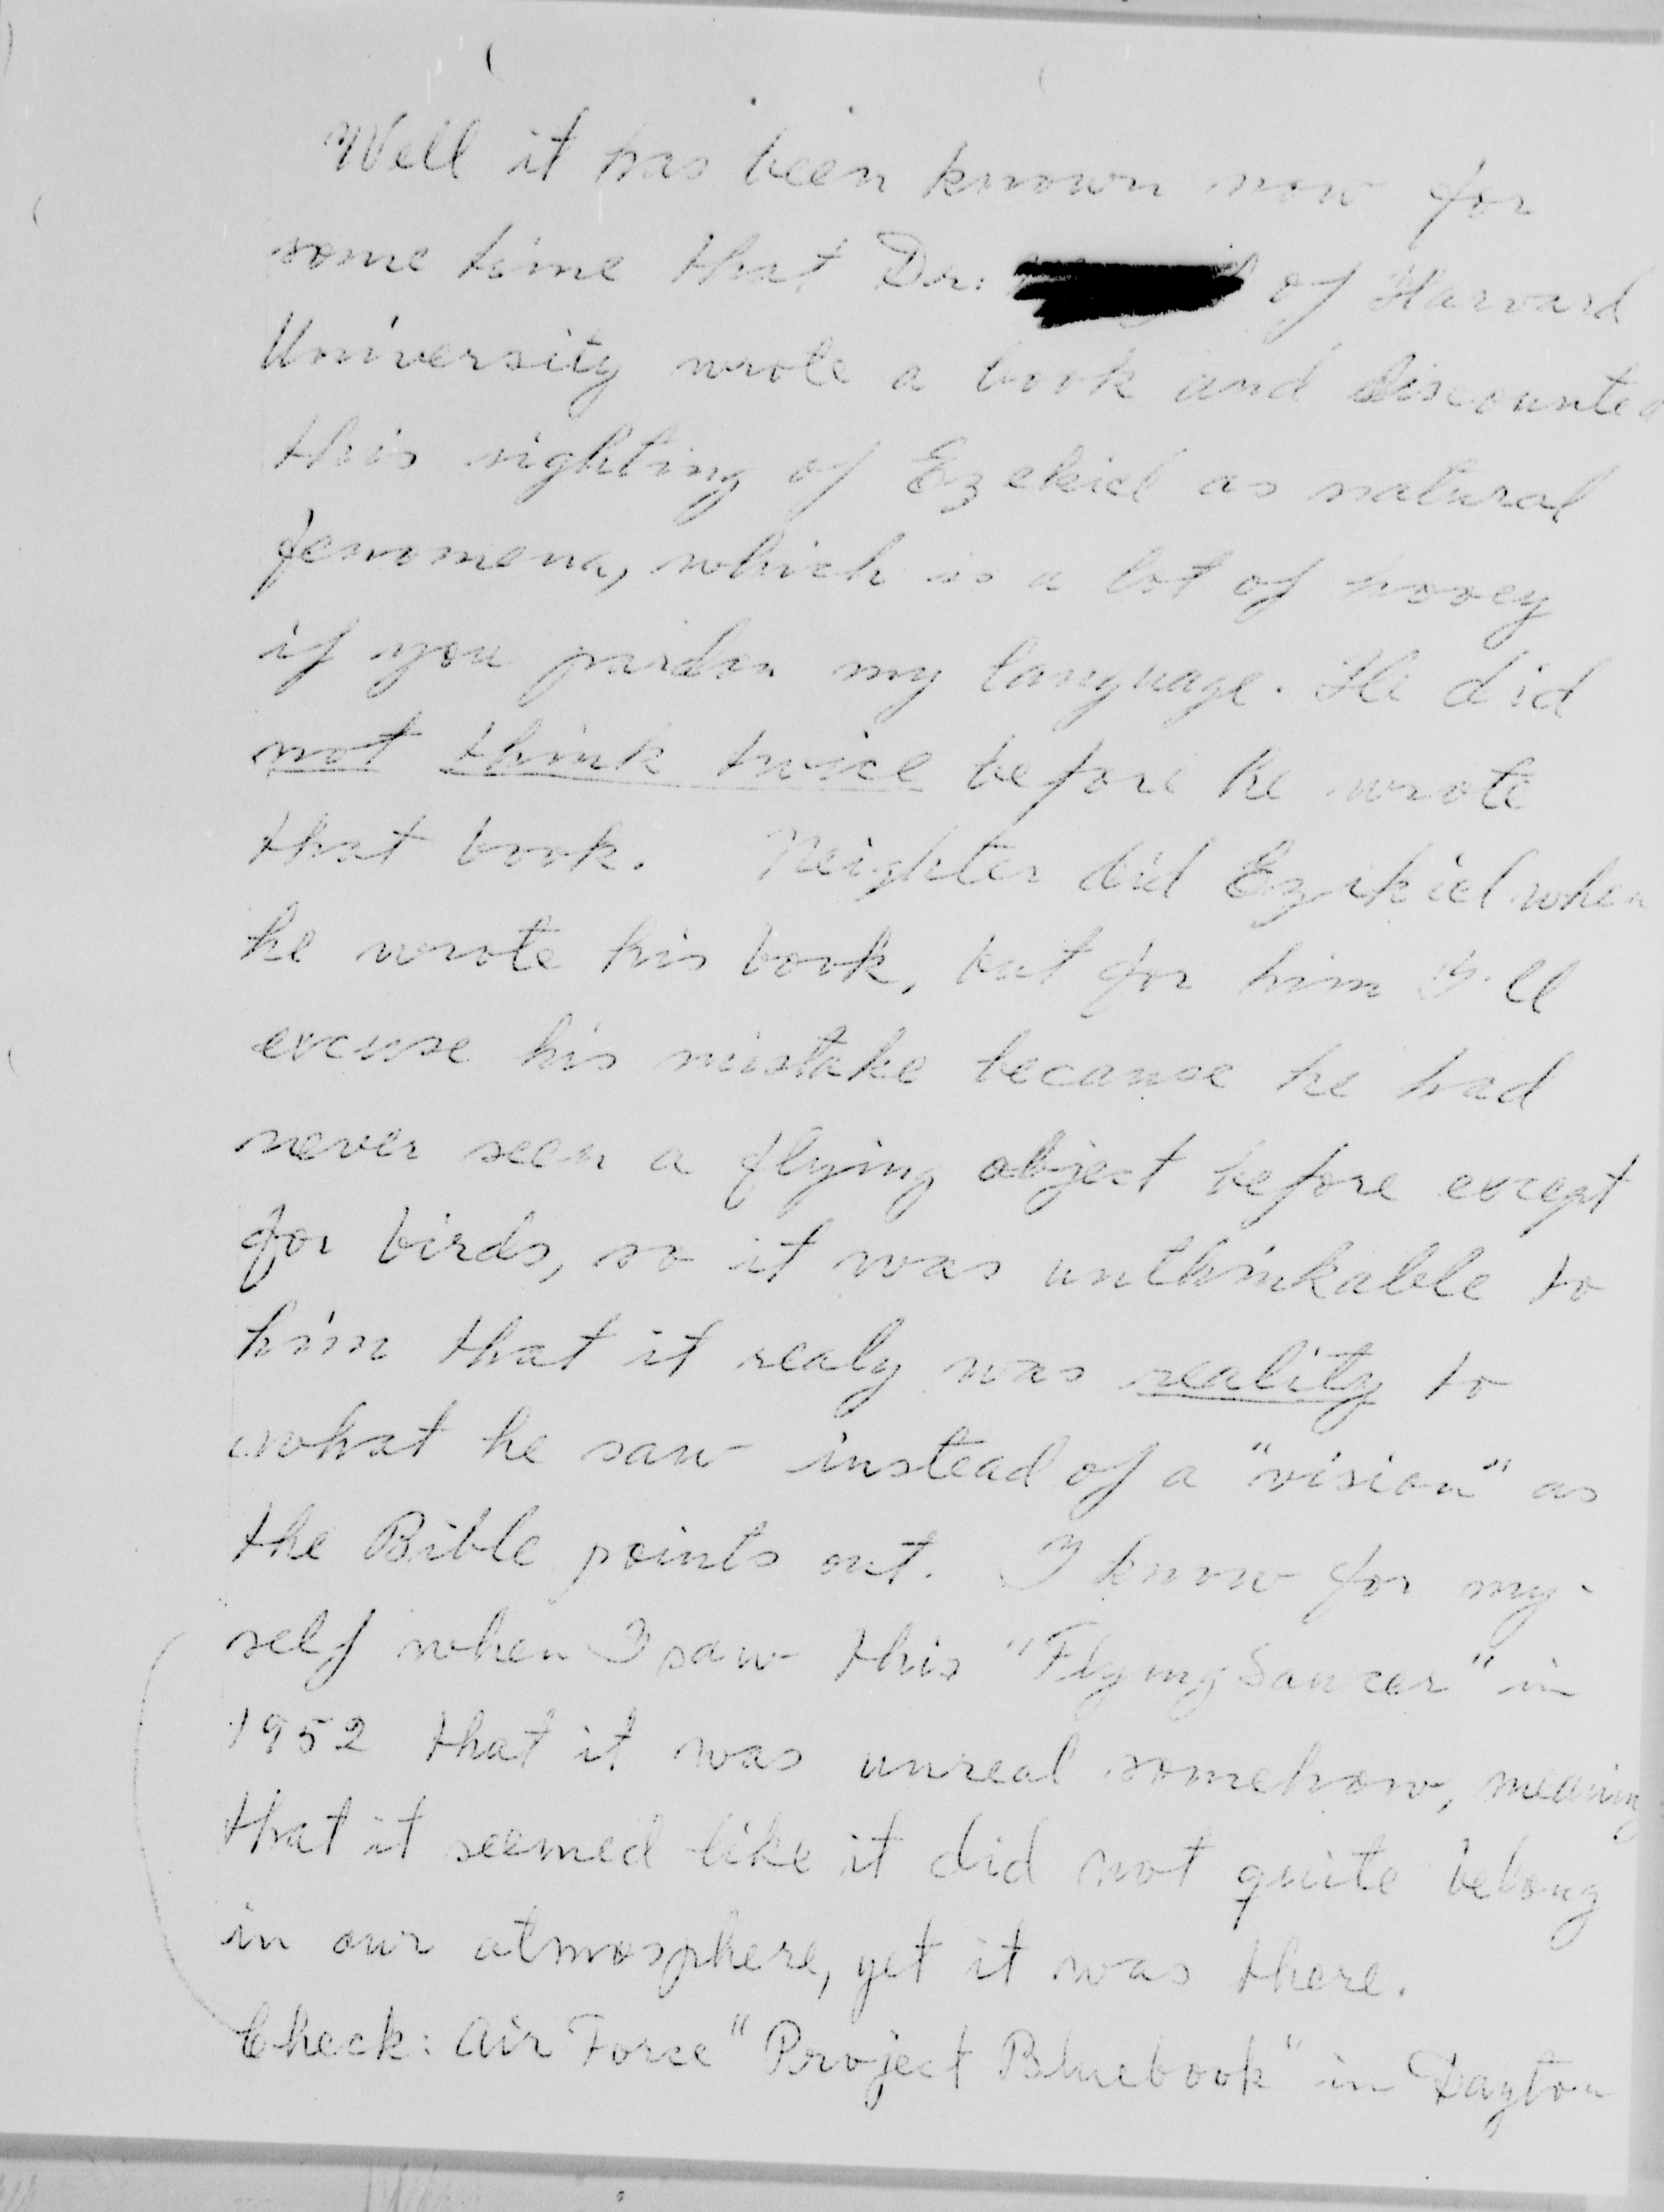 Well it has been known now for
some time that Dr. of Harvard
University wrote a book and discounted
this sighting of Ezekiel as natural
fenomena, which is a lot of hooey
if you pardon my language. He did
not think twice before he wrote
that book. Neighter did Ezekiel when
he wrote his book, but for him I'll
excuse his mistake because he had
never seen a flying object before except
for birds, so it was unthinkable to
him that it realy was reality to
what he saw instead of a "vision" as
the Bible points out. I know for my-
self when I saw this "Flying Saucer" in
1952 that it was unreal somehow, meaning
that it seemed like it did not quite belong
in our atmosphere, yet it was there.
Check: Air Force "Project Bluebook" in Dayton